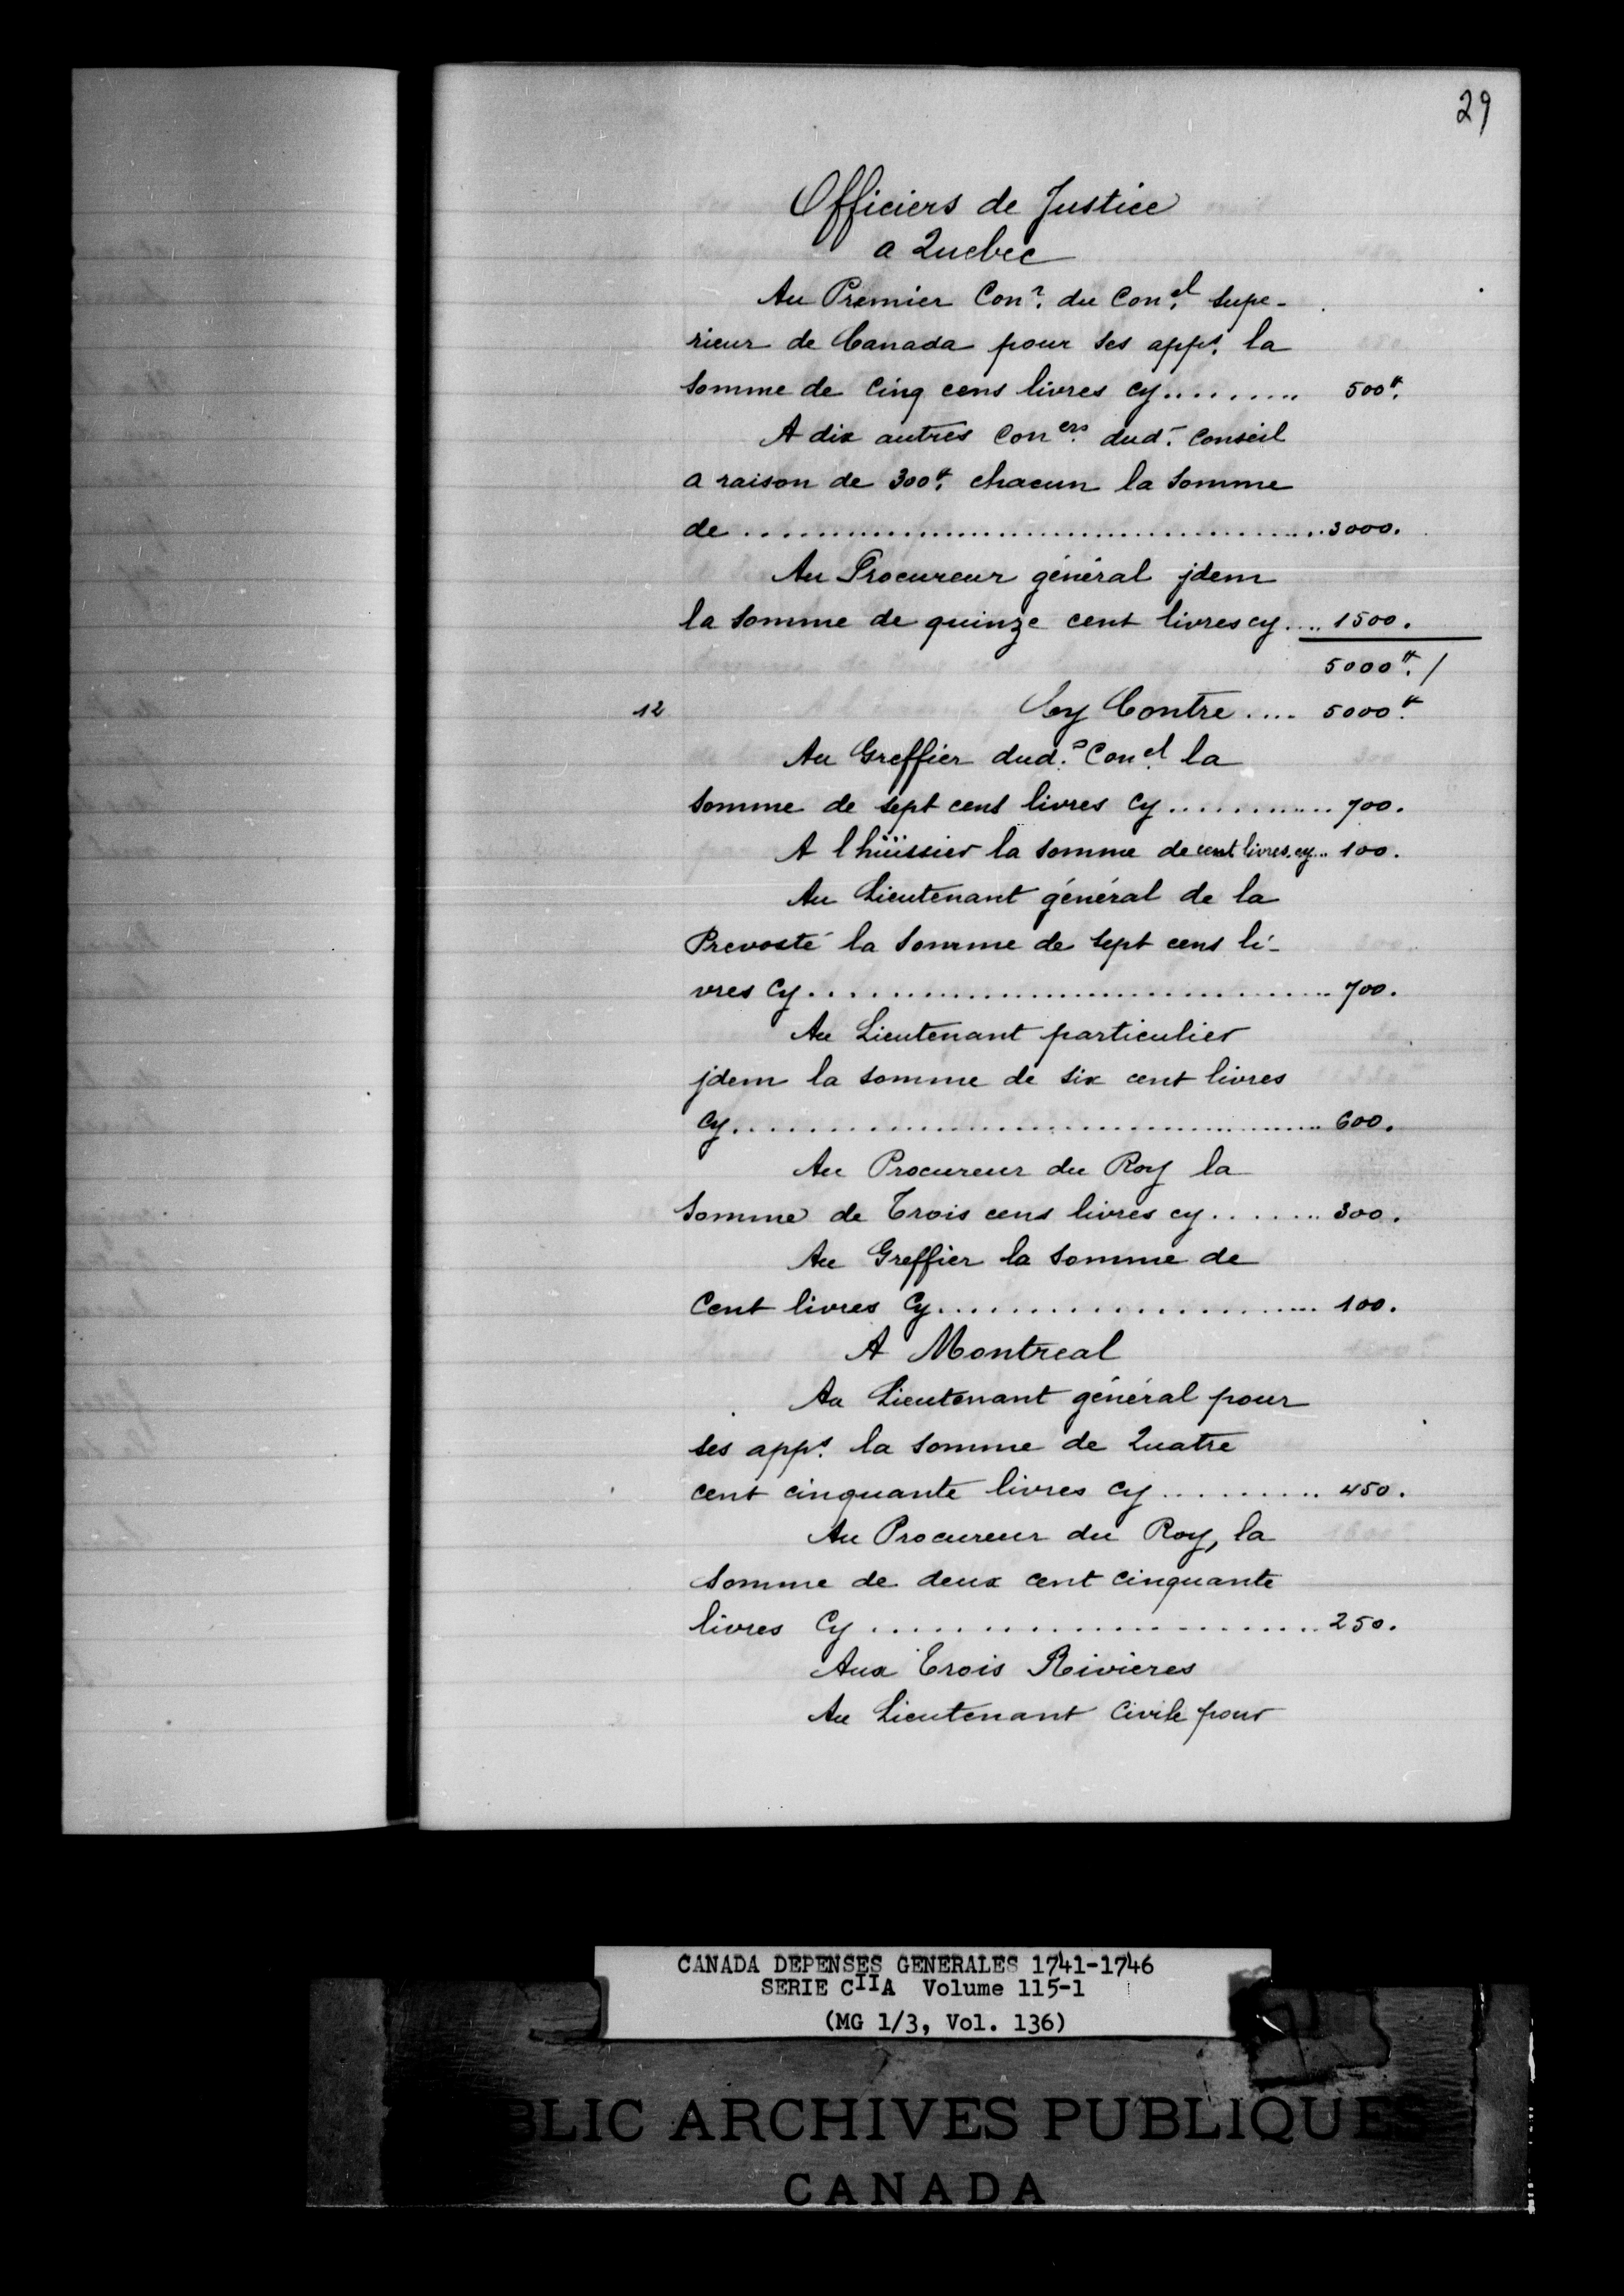 29
Officiers de Justice
a Quebec
Au Premier Con.r du Con.el supe-
rieur de Canada pour ses app.s la
somme de cinq cens livres cy......... 500.tt
A dix autres Con.ers dud.t Conseil
a raison de 300.tt chacun la somme
de .......................................... 3000.
Au Procureur général jdem
la somme de quinze cent livres cy.... 1500.
5000.tt /
12 Cy Contre .... 5000.tt
Au Greffier dud.s Con.el la
somme de sept cens livres cy ............ 700.
A lhüissier la somme de cent livres cy... 100.
Au Lieutenant général de la
Prevosté la somme de sept cens li-
vres cy .................................. 700.
Au Lieutenant particulier
jdem la somme de six cent livres
cy ....................................... 600.
Au Procureur du Roy la
somme de Trois cens livres cy ........ 300.
Au Greffier la somme de
Cent livres cy ........................ 100.
A Montreal
Au Lieutenant général pour
ses app.s la somme de Quatre
cent cinquante livres cy .......... 450.
Au Procureur du Roy, la
somme de deux cent cinquante
livres cy ........................... 250.
Aux Trois Rivières
Au Lieutenant Civile pour
CANADA DEPENSES GENERALES 1741-1746
SERIE CIIA Volume 115-1
(MG 1/3, Vol. 136)
BLIC ARCHIVES PUBLIQUES
CANADA